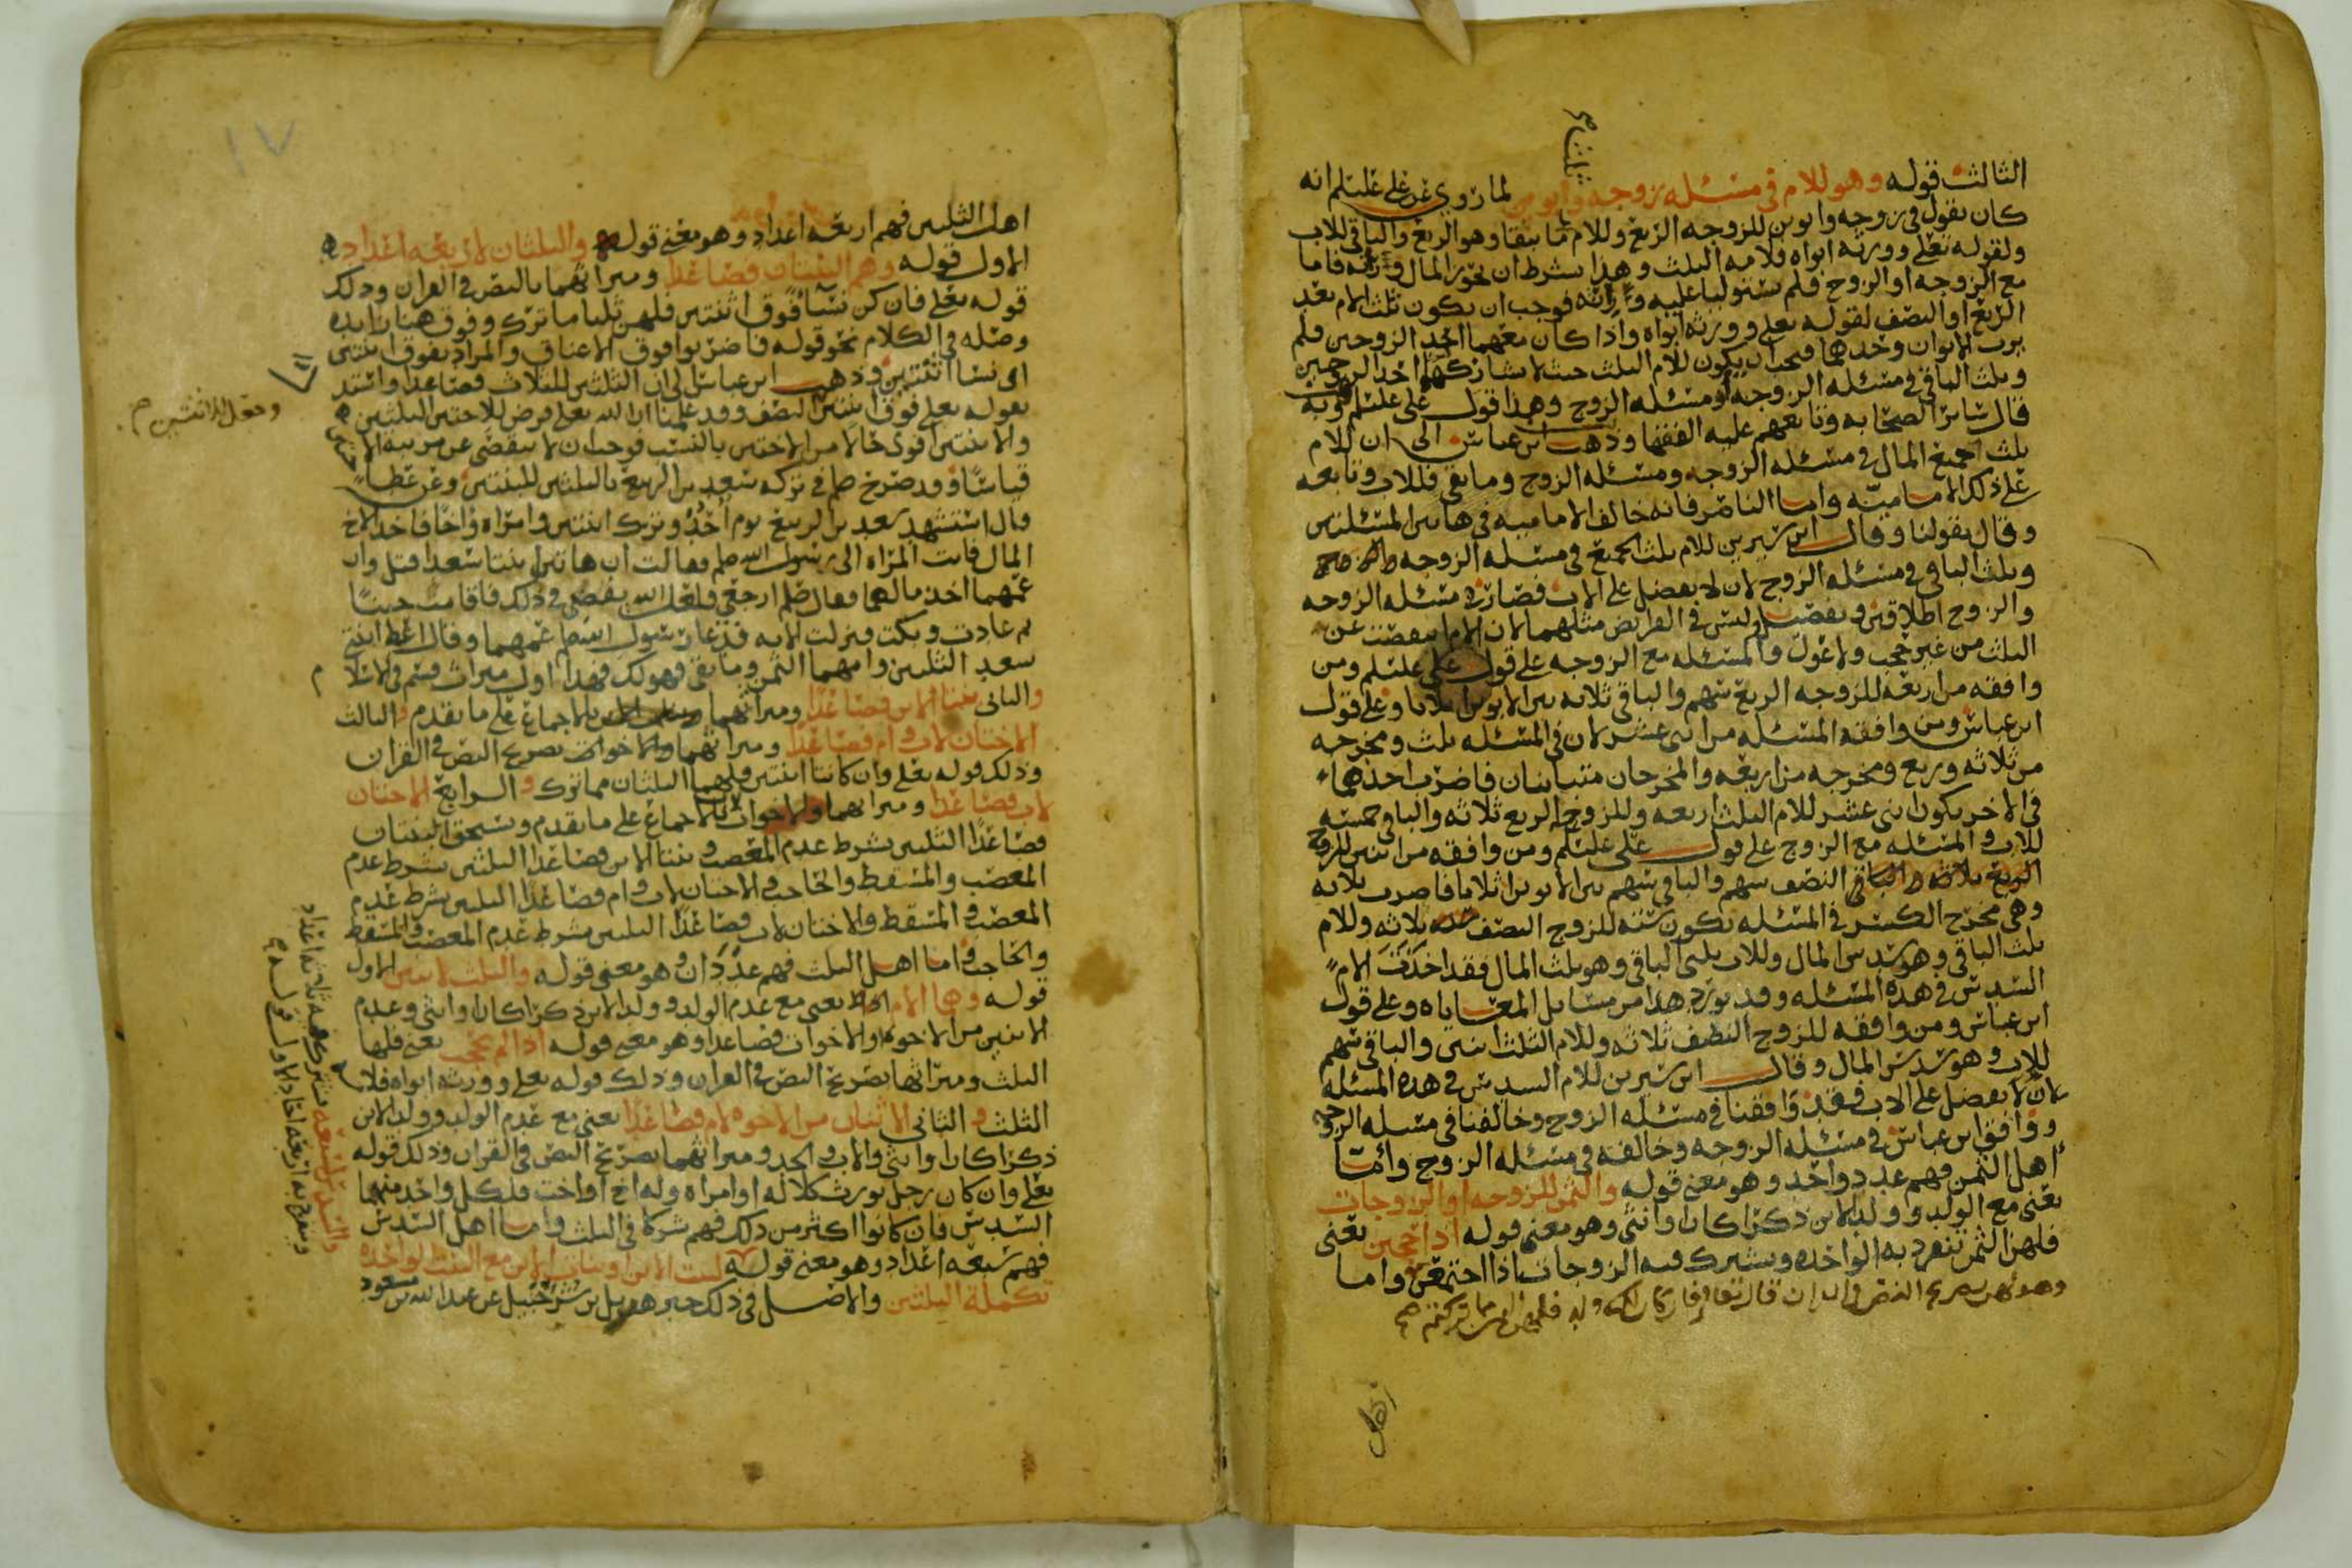 الثالث قوله وهو للام في مسئله زوجه وابوين لما روي عن علي علىلم انه
كان يقول في زوجه وابوين للزوجه الربع وللام ما يبقا وهو الربع والباقي للاب
ولقوله تعلى وورثه ابواه فلامه الثلث وهذا بشرط ان تحوز المال وراثه فاما
مع الزوجه او الزوج فلم يستوليا عليه وراثه فوجب ان يكون ثلث الام بعد
الربع او النصف لقوله تعلى وورثه ابواه واذا كان معهما احد الزوجين فلم
يرث الابوان وحدهما فيجب ان يكون للام الثلث حيث لا يشاركهما احد الزوجين
وثلث الباقي في مسئله الزوجه او مسئله الزوج وهذا قول علي علىلم وبه
قال سائر الصحابه وتابعهم عليه الفقها وذهب ابن عباس الى ان للام
ثلث جميع المال في مسئله الزوجه ومسئله الزوج وما بقي فللاب وتابعه
على ذلك الاماميه واما الناصر فانه خالف الاماميه في هاتين المسئلتين
وقال بقولنا وقال ابن سيرين للام ثلث الجميع في مسئله الزوجه
وثلث الباقي في مسئله الزوج لان لا يفضل على الاب فصار في مسئله الزوجه
والزوج اطلاقين وتفصيل وليس في الفرايض مثلهما لان الام نقصت عن
الثلث من غير حجب ولا عول والمسئله مع الزوجه على قول علي علىلم ومن
وافقه من اربعه للزوجه الربع سهم والباقي ثلاثه بين الابوين اثلاثا وعلى قول
ابن عباس ومن وافقه المسئله من اثنى عشر لان في المسئله ثلث ومخرجه
من ثلاثه وربع ومخرجه من اربعه والمخرجان متباينان فاضرب احدهما
في الاخر يكون اثنى عشر للام الثلث اربعه وللزوجه الربع ثلاثه والباقي خمسه
للاب والمسئله مع الزوج على قول علي علىلم ومن وافقه من اثنين للزوج
النصف سهم والباقي سهم بين الابوين اثلاثا فاضرب ثلاثه
وهي مخرج الكسر في المسئله تكون سته للزوج النصف ثلاثه وللام
ثلث الباقي وهو سدس المال وللاب ثلثى الباقي وهو ثلث المال فقد اخذت الام
السدس في هذه المسئله وقد يورد هذا من مسايل المعاياه وعلى قول
ابن عباس ومن وافقه للزوج النصف ثلاثه وللام الثلث اثنين والباقي سهم
للاب وهو سدس المال وقال ابن سيرين للام السدس في هذه المسئله
لان لا يفضل على الاب فقد وافقنا في مسئله الزوج وخالفنا في مسئله الزوجه
ووافق ابن عباس في مسئله الزوجه وخالفه في مسئله الزوج واما
اهل الثمن فهم عدد واحد وهو معنى قوله والثمن للزوجه او الزوجات
يعني مع الولد وولد الابن ذكرا كان او انثى وهو معنى قوله اذا حجبن يعني
فلهن الثمن تنفرد به الواحده ويشترك فيه الزوجات اذا اجتمعن واما
وهو لهن بصريح النص في القران قال تعالى فان كان لكم ولد فلهن الثمن مما تركتم صح
اهل
١٧
اهل الثلثين فهم اربعه اعداد وهو معنى قوله والثلثان لاربعه اعداد
الاول قوله وهم البنتان فصاعدا وميراثهما بالنص في القران وذلك
قوله تعلى فان كن نسآ فوق اثنتين فلهن ثلثا ما ترك وفوق هنا زايده
وصله في الكلام نحو قوله فاضربوا فوق الاعناق والمراد بفوق اثنتين
اى نسا اثنتين وذهب ابن عباس الى ان الثلثين للثلاث فصاعدا واستدل
بقوله تعلى فوق اثنتين النصف وقد علمنا ان الله تعلى فرض للاختين الثلثين
وجعل للاثنتين صح
والابنتين اقوى حالا من الاختين بالنسب فوجب ان لا ينقص عن مرتبه الاختين
قياسا وقد صرح صلم في تركه سعد بن الربيع بالثلثين للبنتين وعن عطا
قال استشهد سعد بن الربيع يوم احد وترك ابنتين وامراه واخا فاخذ الاخ
المال فاتت المراه الى رسول الله صلم فقالت ان هاتين ابنتا سعد قتل وان
عمهما اخذ مالهما فقال صلم ارجعي فلعل الله يقضي في ذلك فاقامت حينا
ثم عادت وبكت فنزلت الايه فدعا رسول الله صلم عمهما وقال اعط ابنتي
سعد الثلثين وامهما الثمن وما بقي فهو لك فهذا اول ميراث قسم في الاسلام
والثاني بنتا الابن فصاعدا وميراثهما بالاجماع على ما تقدم والثالث
الاختان لاب وام فصاعدا وميراثهما والاخوات بصريح النص في القران
وذلك قوله تعلى وان كانتا اثنتين فلهما الثلثان مما ترك والرابع الاختان
لاب فصاعدا وميراثهما والاخوات بالاجماع على ما تقدم ويستحق البنتان
فصاعدا الثلثين بشرط عدم المعصب وبنتا الابن فصاعدا الثلثين بشرط عدم
المعصب والمسقط والحاجب والاختان لاب وام فصاعدا الثلثين بشرط عدم
المعصب والمسقط والاختان لاب فصاعدا الثلثين بشرط عدم المعصب والمسقط
والحاجب واما اهل الثلث فهم عددان وهو معنى قوله والثلث لاثنين الاول
قوله وهما الام يعني مع عدم الولد وولد الابن ذكرا كان او انثى وعدم
الاثنين من الاخوه او الاخوات فصاعدا وهو معنى قوله اذا لم تحجب يعني فلها
الثلث وميراثها بصريح النص في القران وذلك قوله تعلى وورثه ابواه فلامه
الثلث والثاني الاثنان من الاخوه لام فصاعدا يعني مع عدم الولد وولد الابن
ذكرا كان او انثى والاب والجد وميراثهما بصريح النص في القران وذلك قوله
تعلى وان كان رجل يورث كلاله او امراه وله اخ او اخت فلكل واحد منهما
السدس فان كانوا اكثر من ذلك فهم شركا في الثلث واما اهل السدس
فهم سبعه اعداد وهو معنى قوله لبنت الابن او بنات الابن مع البنت الواحده
تكملة الثلثين والاصل في ذلك خبر هزيل بن شرحبيل عن عبد الله بن مسعود
والسدس لسبعه يشترك فيه ثلاثه اعداد
وينفرد به اربعه احاد الاول قوله